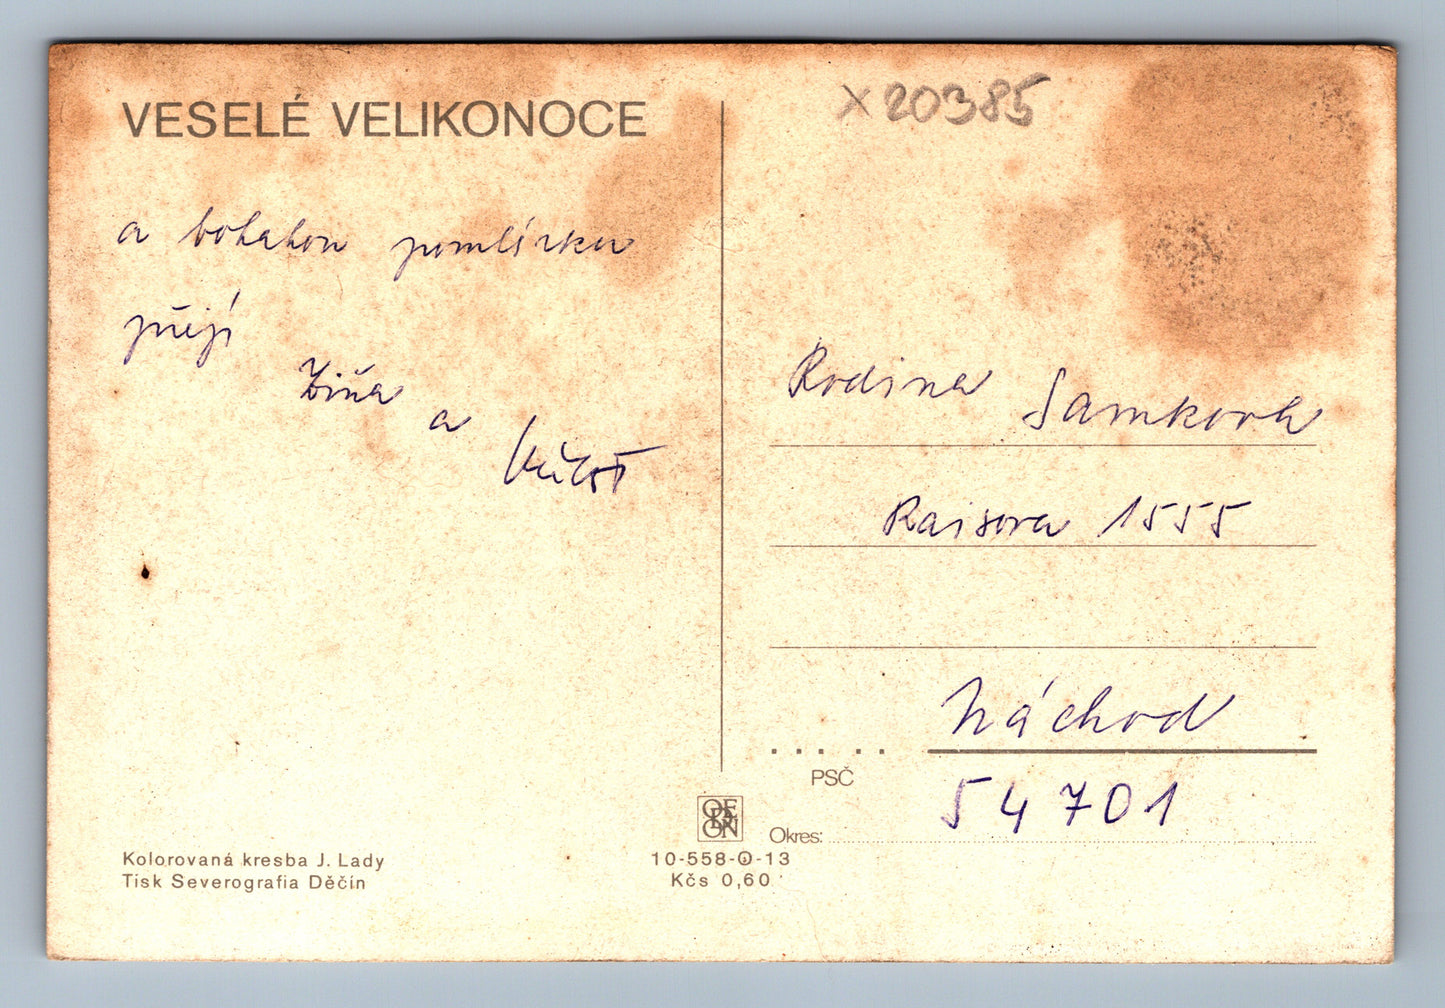 VESELÉ VELIKONOCE
a bohatou pomlázku
přejí
Zina
a
Miloš
x 20385
Rodina Samkova
Raisova 1555
Náchod
PSČ
54701
Okres:
ODEON
Kolorovaná kresba J. Lady
Tisk Severografia Děčín
10-558-O-13
Kčs 0,60